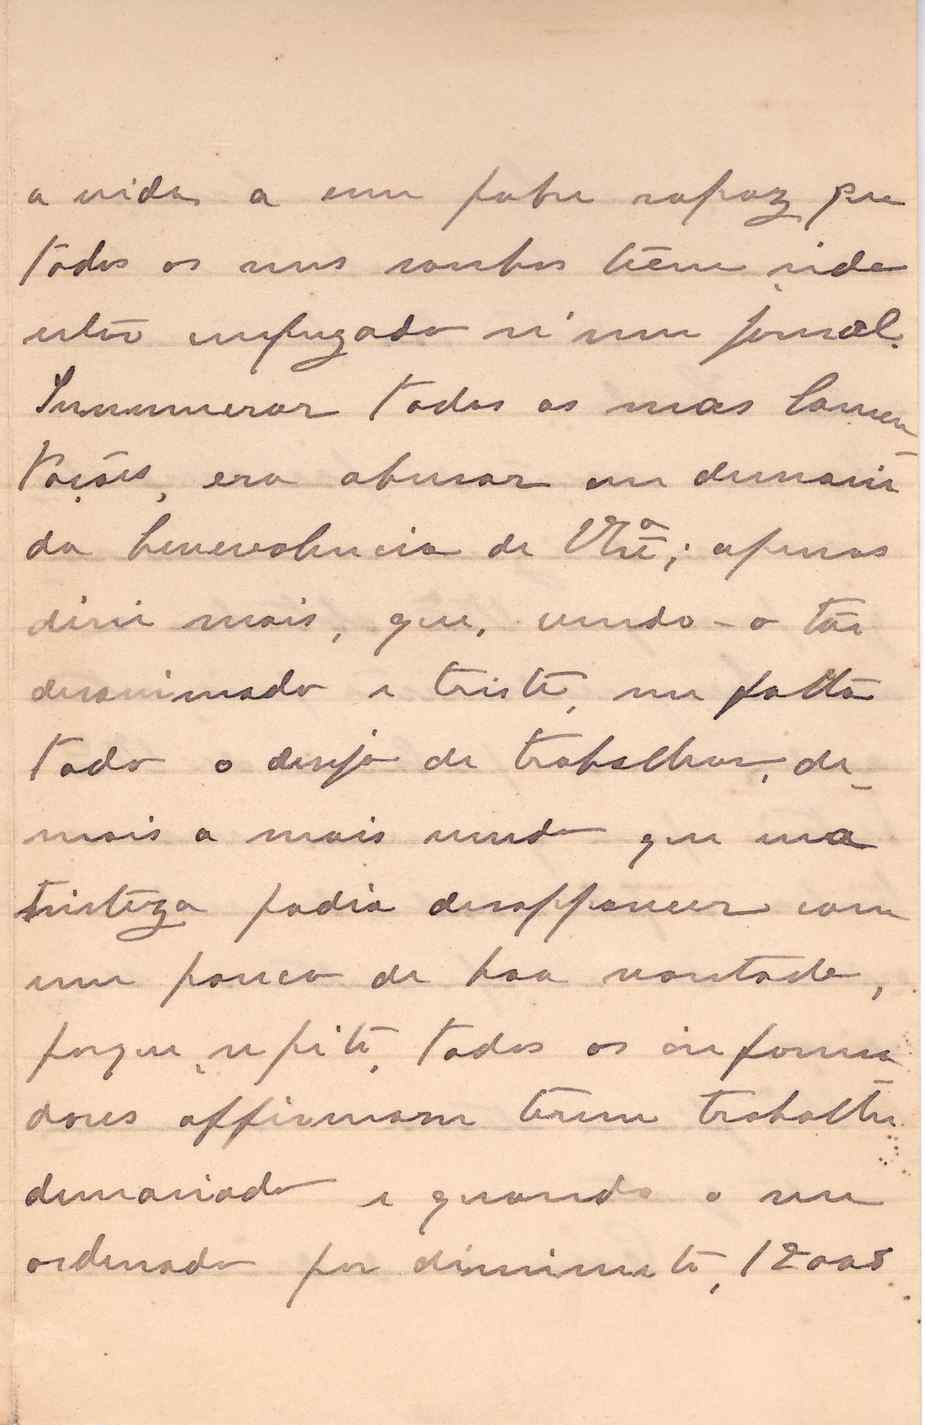 a vida a um pobre rapaz que
todos os seus sonhos têem sido
estar empregado n'um jornal.
Innumerar todas as suas lamen
tações, era abusar em demasia
da benevolencia de V. Ex.ª; apenas
direi mais, que, vendo-o tão
desanimado e triste, me falta
todo o desejo de trabalhar, de-
mais a mais vendo que essa
tristeza podia desapparecer com
um pouco de boa vontade,
porque, repito, todos os informa
dores affirmam terem trabalho
demasiado e quando o seu
ordenado por diminuto, 12000